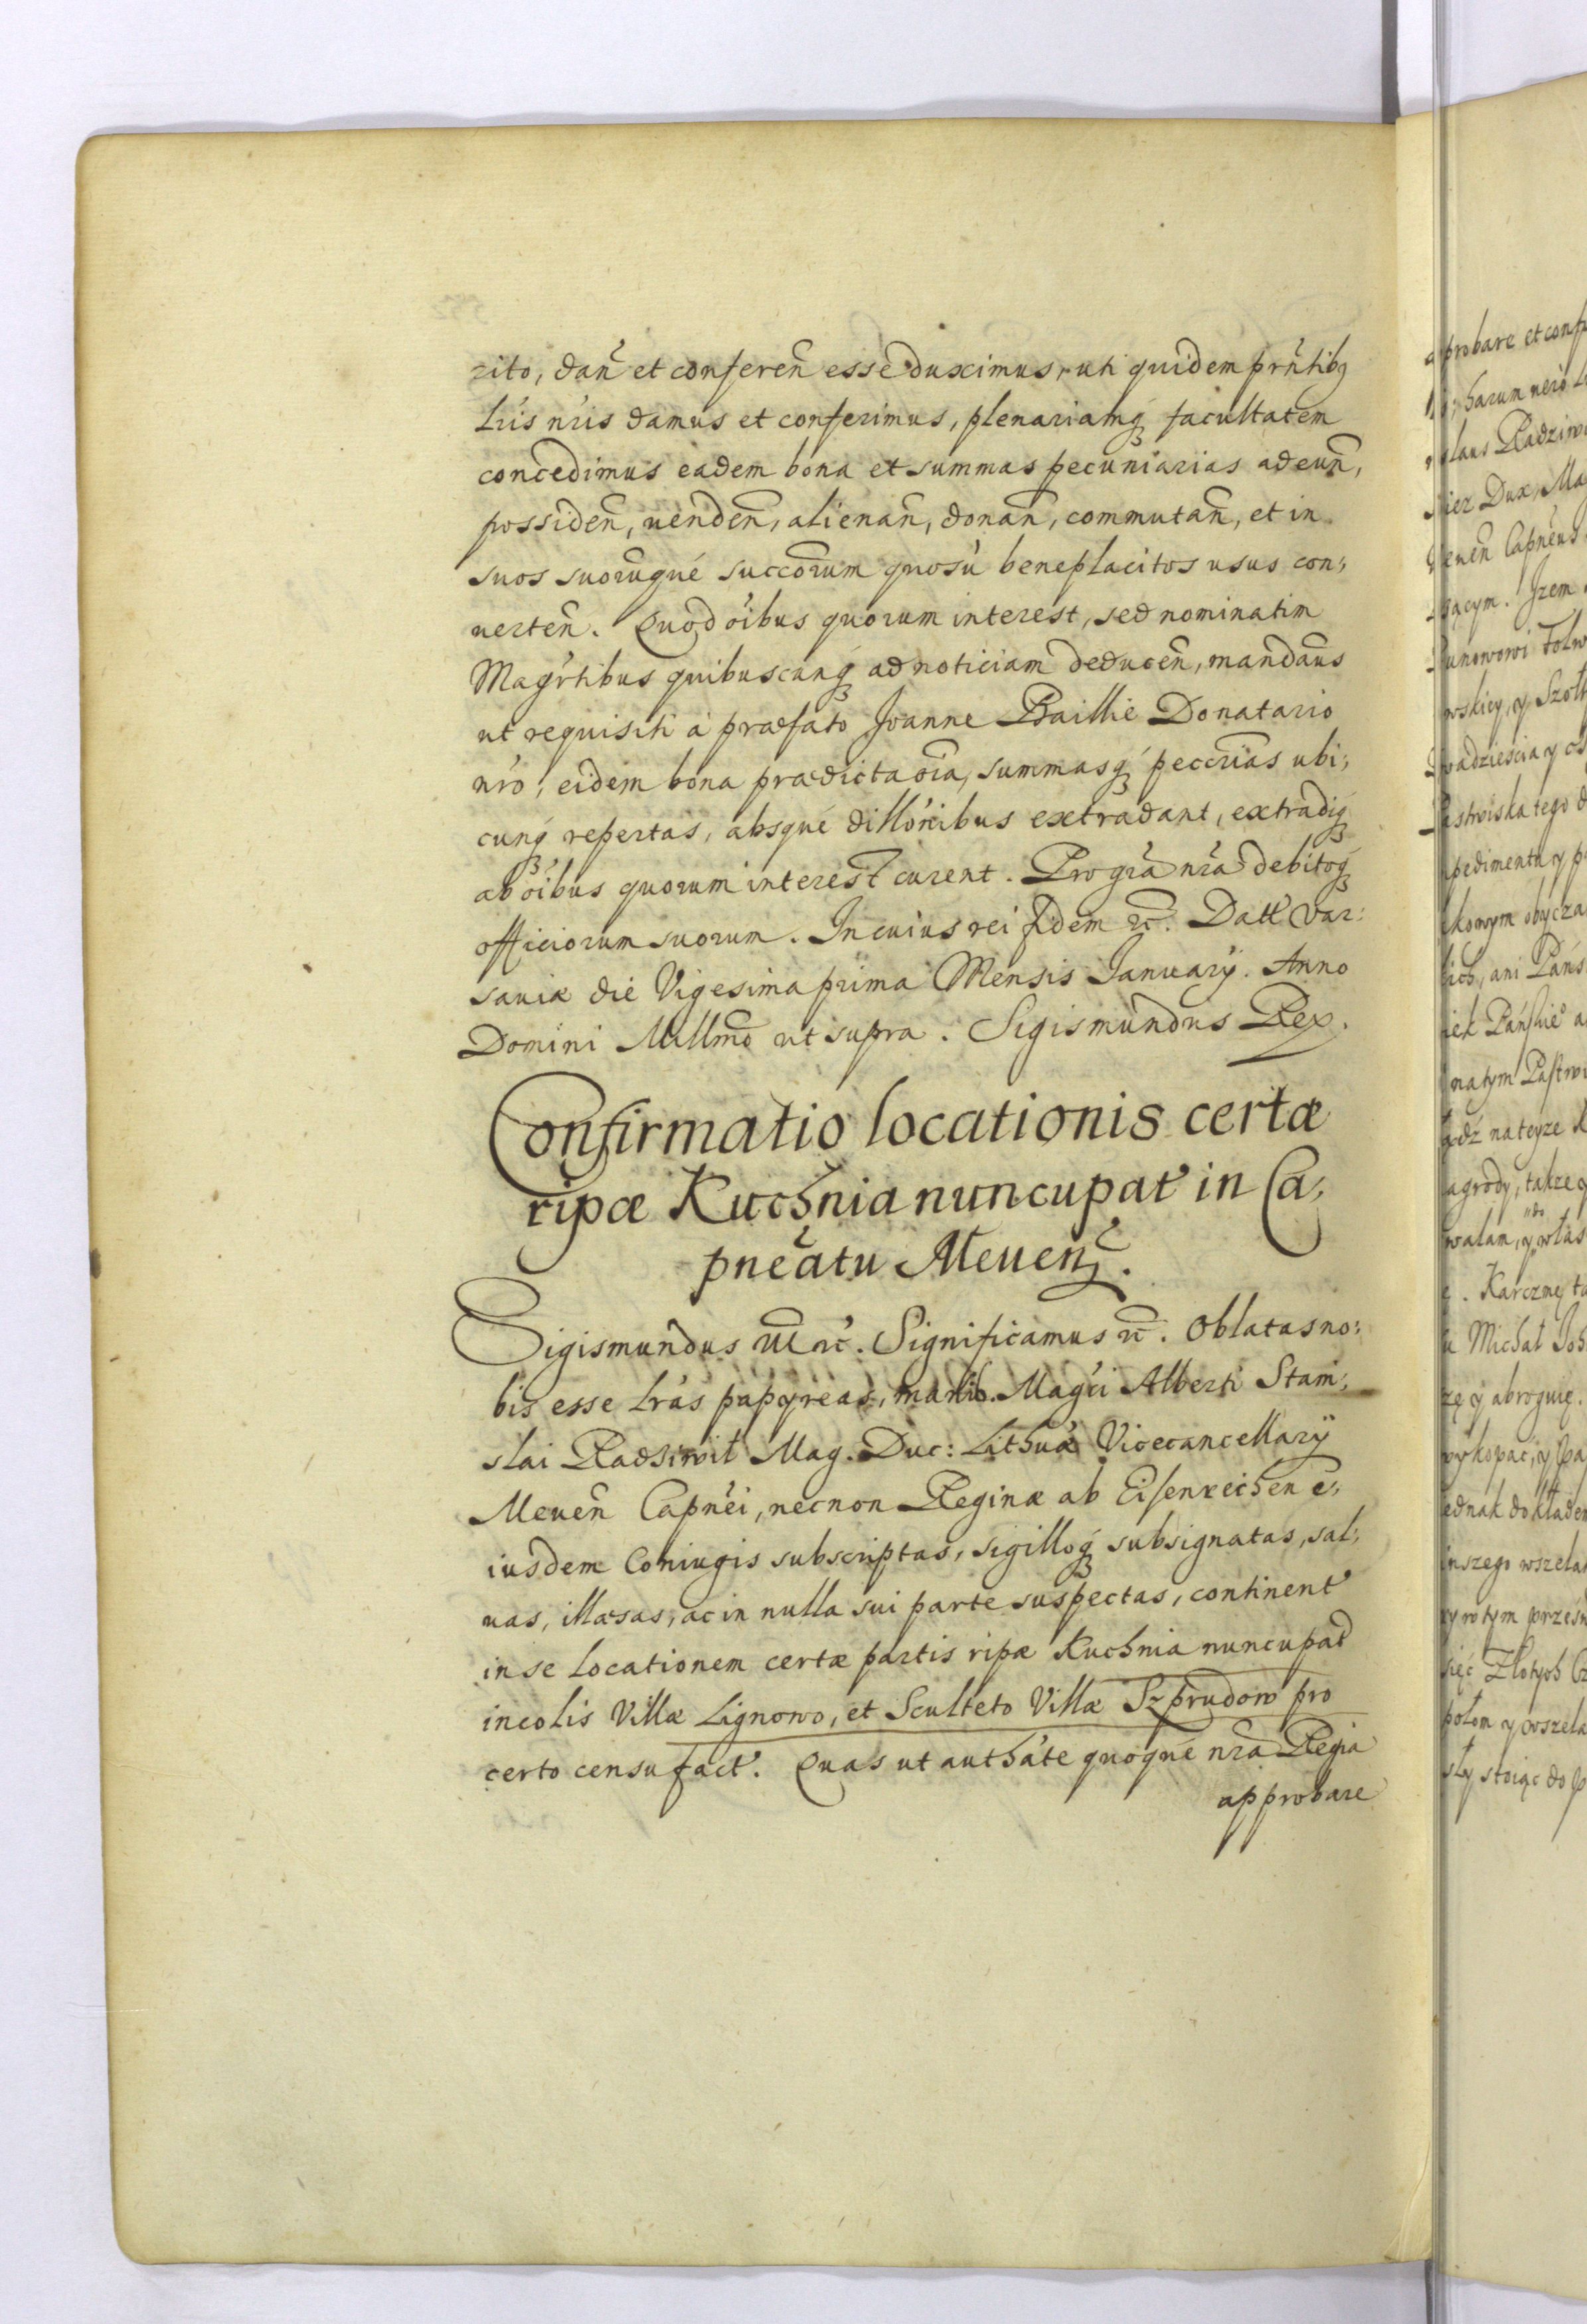 rito, dan̄ et conferen̄ esse duximus, uti quidem prn̄tibq
Lr̄is nr̄is damus et conferimus, plenariamq́ facultatem
concedimus eadem bona et summas pecuniarias adeun̄,
possiden̄, uenden̄, alienan̄, donan̄, commutan̄, et in
suos suorūque succorum quosu' beneplacitos usus con,
uerten̄. Quod oībus quorum interest, sed nominatim
Magr̄tibus quibuscunq́ ad noticiam deducen̄, mandan̄s
ut requisiti à præfato Joanne Baillie Donatario
nr̄o, eidem bona prædicta oīa, summasq́ peccrīas ubi,
cunq́ repertas, absque dillōnibus extradant, extradiq́
ab oībus quorum interest curent. Pro grā nrā debitoq́
officiorum suorum. In cuius rei fidem ꝛc̄. Datt Var:
sauiæ die Vigesima prima Mensis Januarÿ. Anno
Domini Millmō ut supra. Sigismundus Rex.
Confirmatio locationis certæ
ripæ Kuchnia nuncupat in Ca,
pneātu Meuen̄.
Sigismundus III ꝛc̄. Significamus ꝛc̄. Oblatas no:
bis esse Lrās papyreas, manib. Magci Alberti Stani,
slai Radziwił Mag. Duc: Lithuæ Vicecancellarÿ
Meuen̄ Capnēi, necnon Reginæ ab Eisenreichen e,
iusdem Coniugis subscriptas, sigilloq́ subsignatas, sal,
uas, illæsas, ac in nulla sui parte suspectas, continent
in se locationem certæ partis ripæ Kuchnia nuncupat
incolis Villæ Lignowo, et Sculteto Villæ Szprudow pro
certo censu fact. Quas ut authāte quoque nrā Regia
approbare